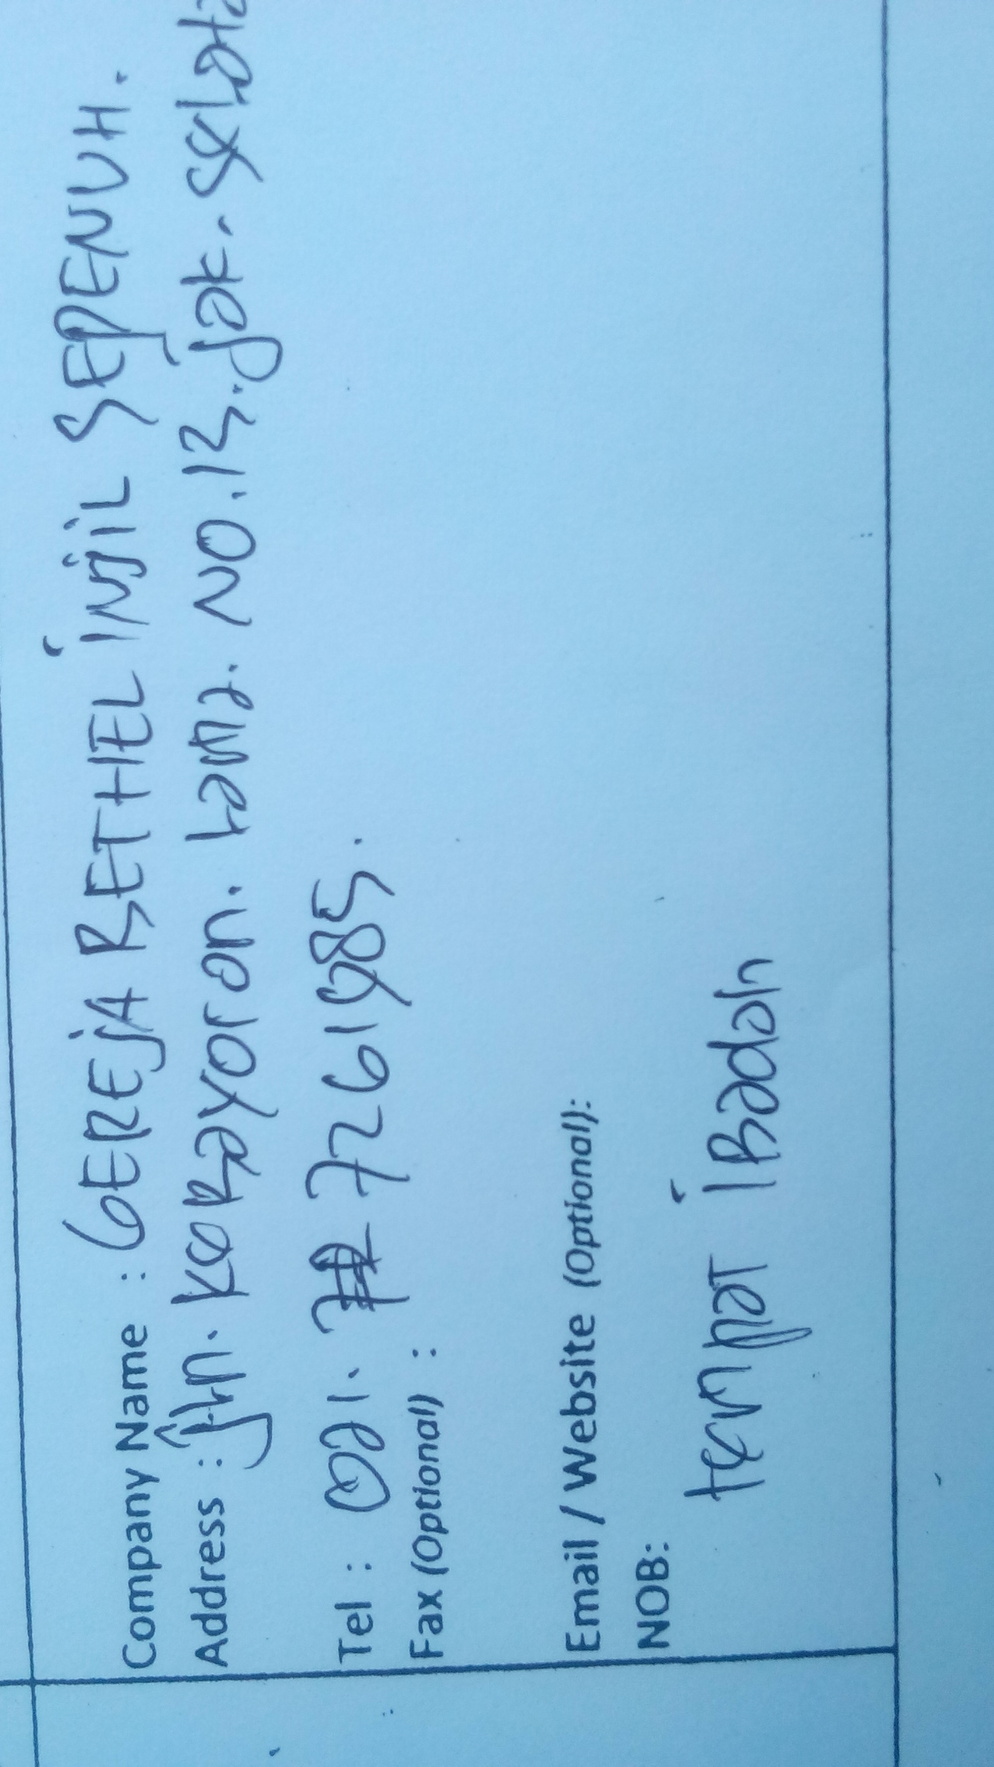 Company Name : GEREJA BETHEL iNjiL SEPENUH.
Address : jln. KeBayoran. Lama. NO.13. Jak. Sela
Tel : 021. 7261985.
Fax (Optional) :
Email / Website (Optional):
NOB:
tempaT iBadah